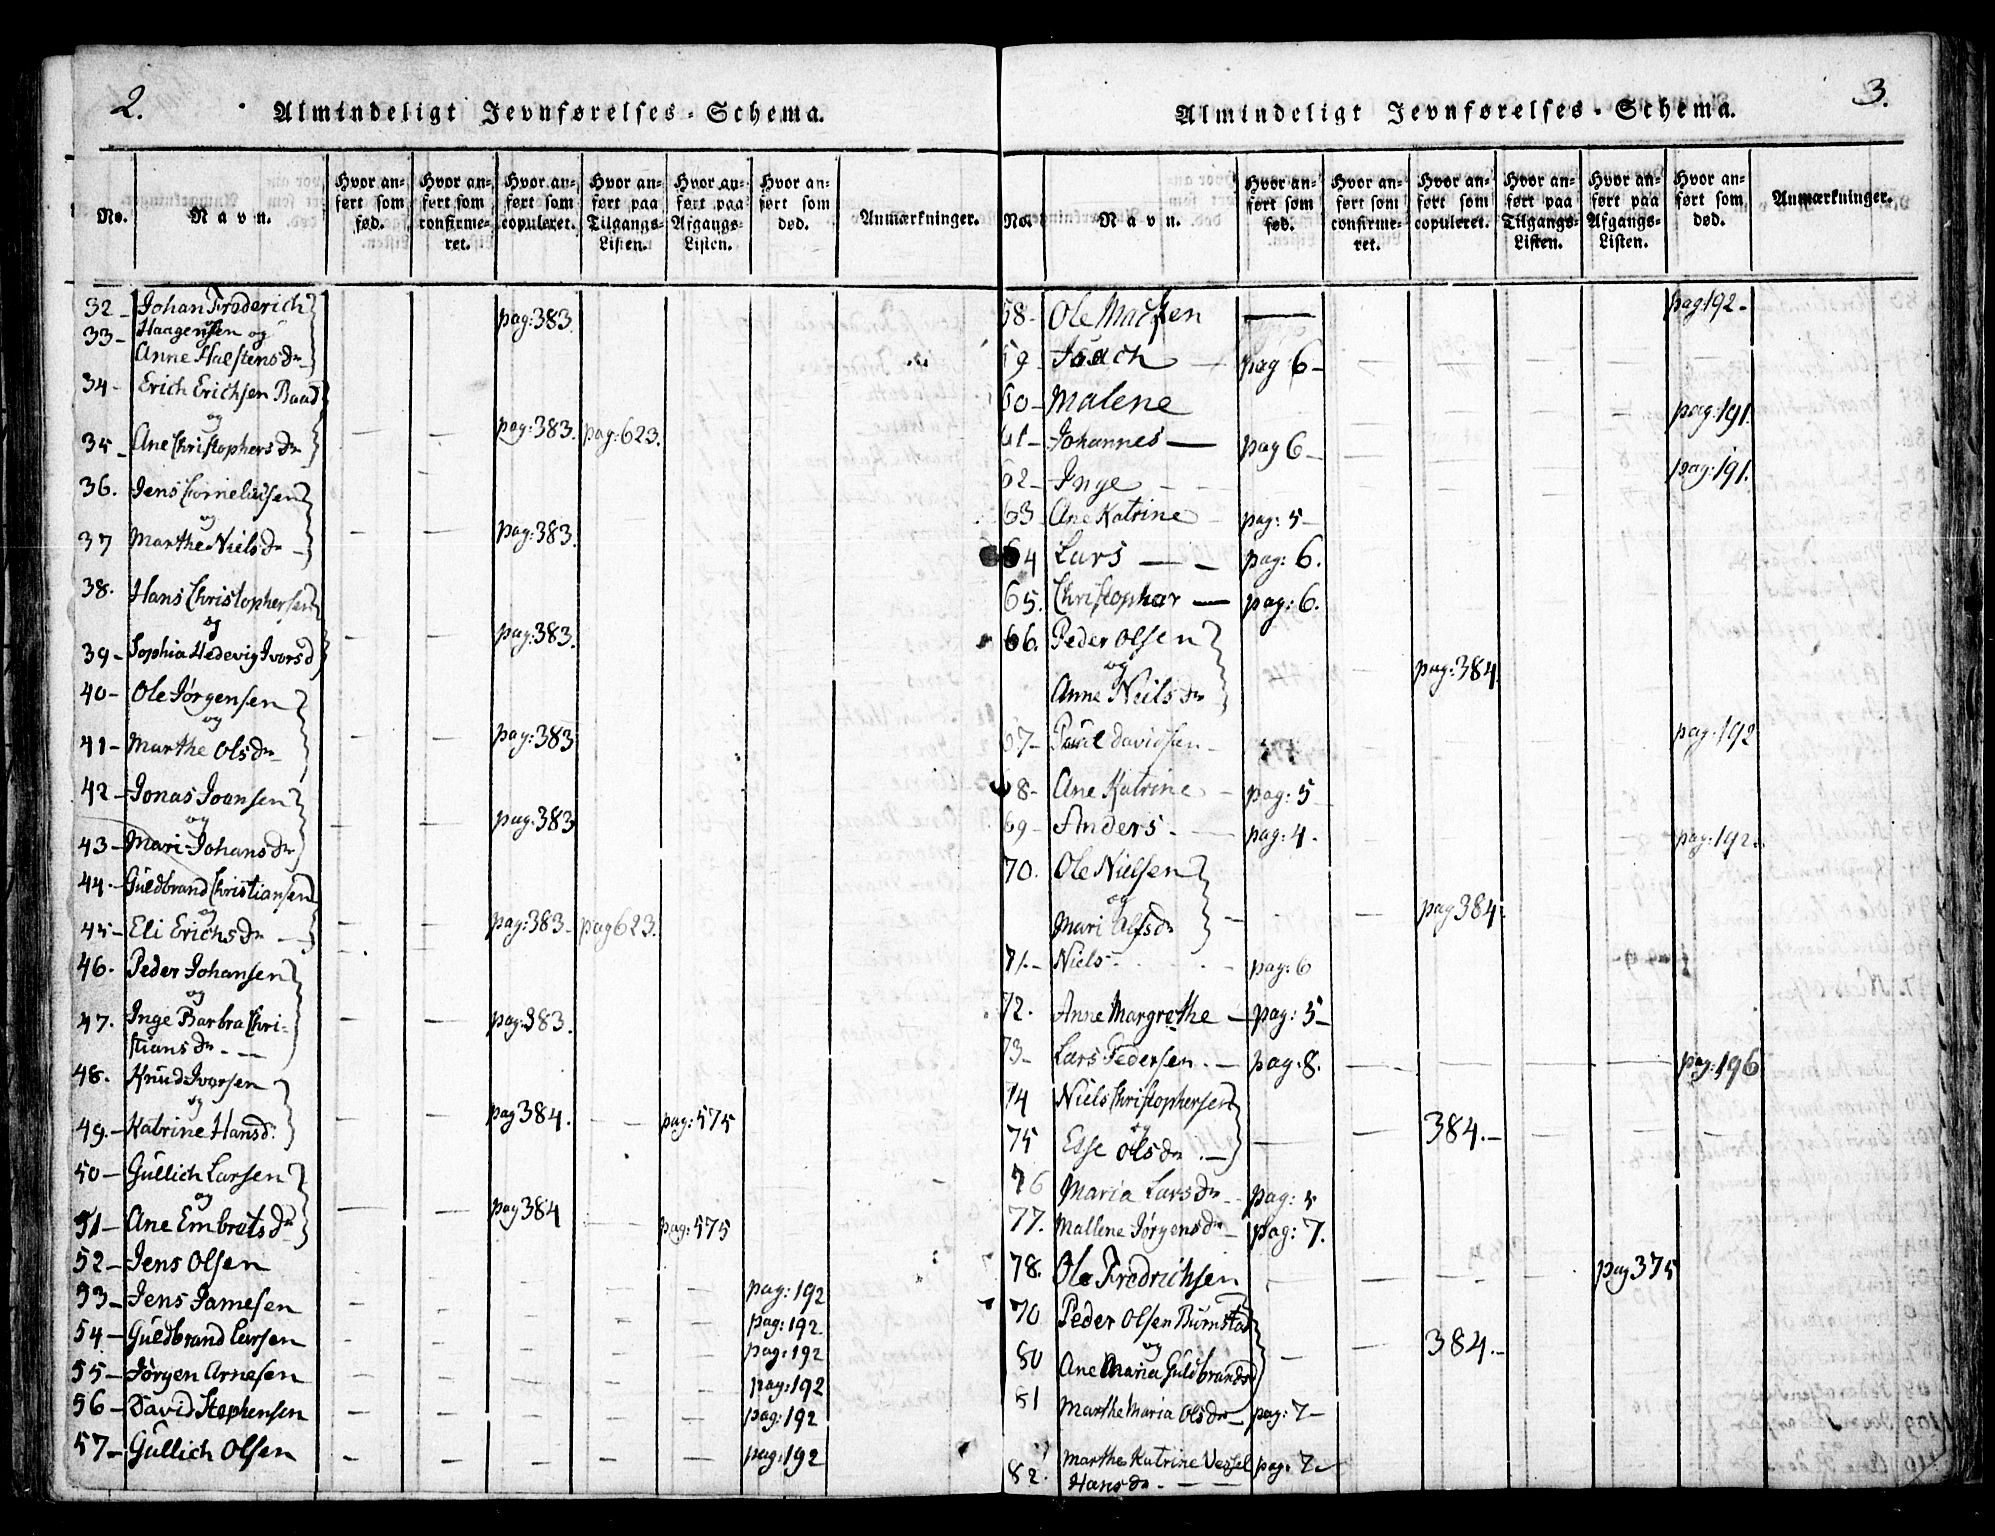 2.
Almindeligt Jevnførelses-Schema.
No.
Navn.
Hvor anført som fød.
Hvor anført som confirmeret.
Hvor anført som copuleret.
Hvor anført paa Tilgangs-Listen.
Hvor anført paa Afgangs-Listen.
Hvor anført som død.
Anmærkninger.
32 - Johan Frederich
33 - Haagensen og pag: 383.
Anne Halstensdr
34 - Erich Erichsen Baad
og pag: 383. pag: 623.
35 - Ane Christophersdr
36. Jens Corneliusen
og pag: 383.
37 Marthe Nielsdr
38. Hans Christophersen
og pag: 383.
39 - Sophia Hedevig Ivorsd
40 - Ole Jørgensen
og pag: 383
41 - Marthe Olsdr
42 - Jonas Joansen
og pag: 383
43 - Mari Johansdr
44. Guldbrand Christiansen
og pag: 383 - pag 623.
45 - Eli Erichsdr
46. Peder Johansen
og
47. Inge Barbra Chri- pag: 383.
stiansdr
48. Knud Ivorsen
og pag 384. pag: 575
49. Katrine Hansd:
50 - Gullich Larsen
og pag 384 pag: 575
51 - Ane Embretsdr
52 - Jens Olsen pag: 192
53 - Jens Jamesen pag: 192
54 - Guldbrand Larsen pag: 192
55 - Jørgen Arnesen pag: 192
56 - David Stephensen pag: 192
57 - Gullich Olsen pag: 192
3.
Almindeligt Jevnførelses-Schema.
No.
Navn.
Hvor anført som fød.
Hvor anført som confirmeret.
Hvor anført som copuleret.
Hvor anført paa Tilgangs-Listen.
Hvor anført paa Afgangs-Listen.
Hvor anført som død.
Anmærkninger.
58 - Ole Madsen pag 192 -
59 - Isach pag 6 -
60 - Malene pag: 191.
61 - Johannes pag 6 -
62 - Inge pag: 191.
63 Ane Katrine pag: 5 -
64 Lars pag: 6.
65. Christopher pag: 6.
66. Peder Olsen
og pag: 384.
Anne Nielsdr
67 - Paul Davidsen pag. 192
68 - Ane Katrine pag: 5
69 - Anders pag: 4. pag: 192.
70. Ole Nielsen
og pag 384.
Mari Alfsdr
71 - Niels pag: 6
72. Anne Margrethe pag: 5 -
73 - Lars Pedersen pag: 8. pag: 196
74 Niels Christophersen
og 384. -
75 Esse Olsdr
76 Maria Larsdr pag: 5
77. Mallene Jørgensdr pag: 7.
78. Ole Fredrichsen pag 375
70 Peder Olsen Burnstad
og 384. -
80 Ane Maria Guldbrandsd
81 Marthe Maria Olsdr pag: 7 -
82. Marthe Katrine Vessel pag. 7 -
Hansdr